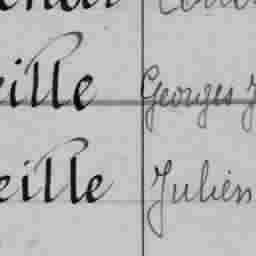 eille Georges J
eille Julien